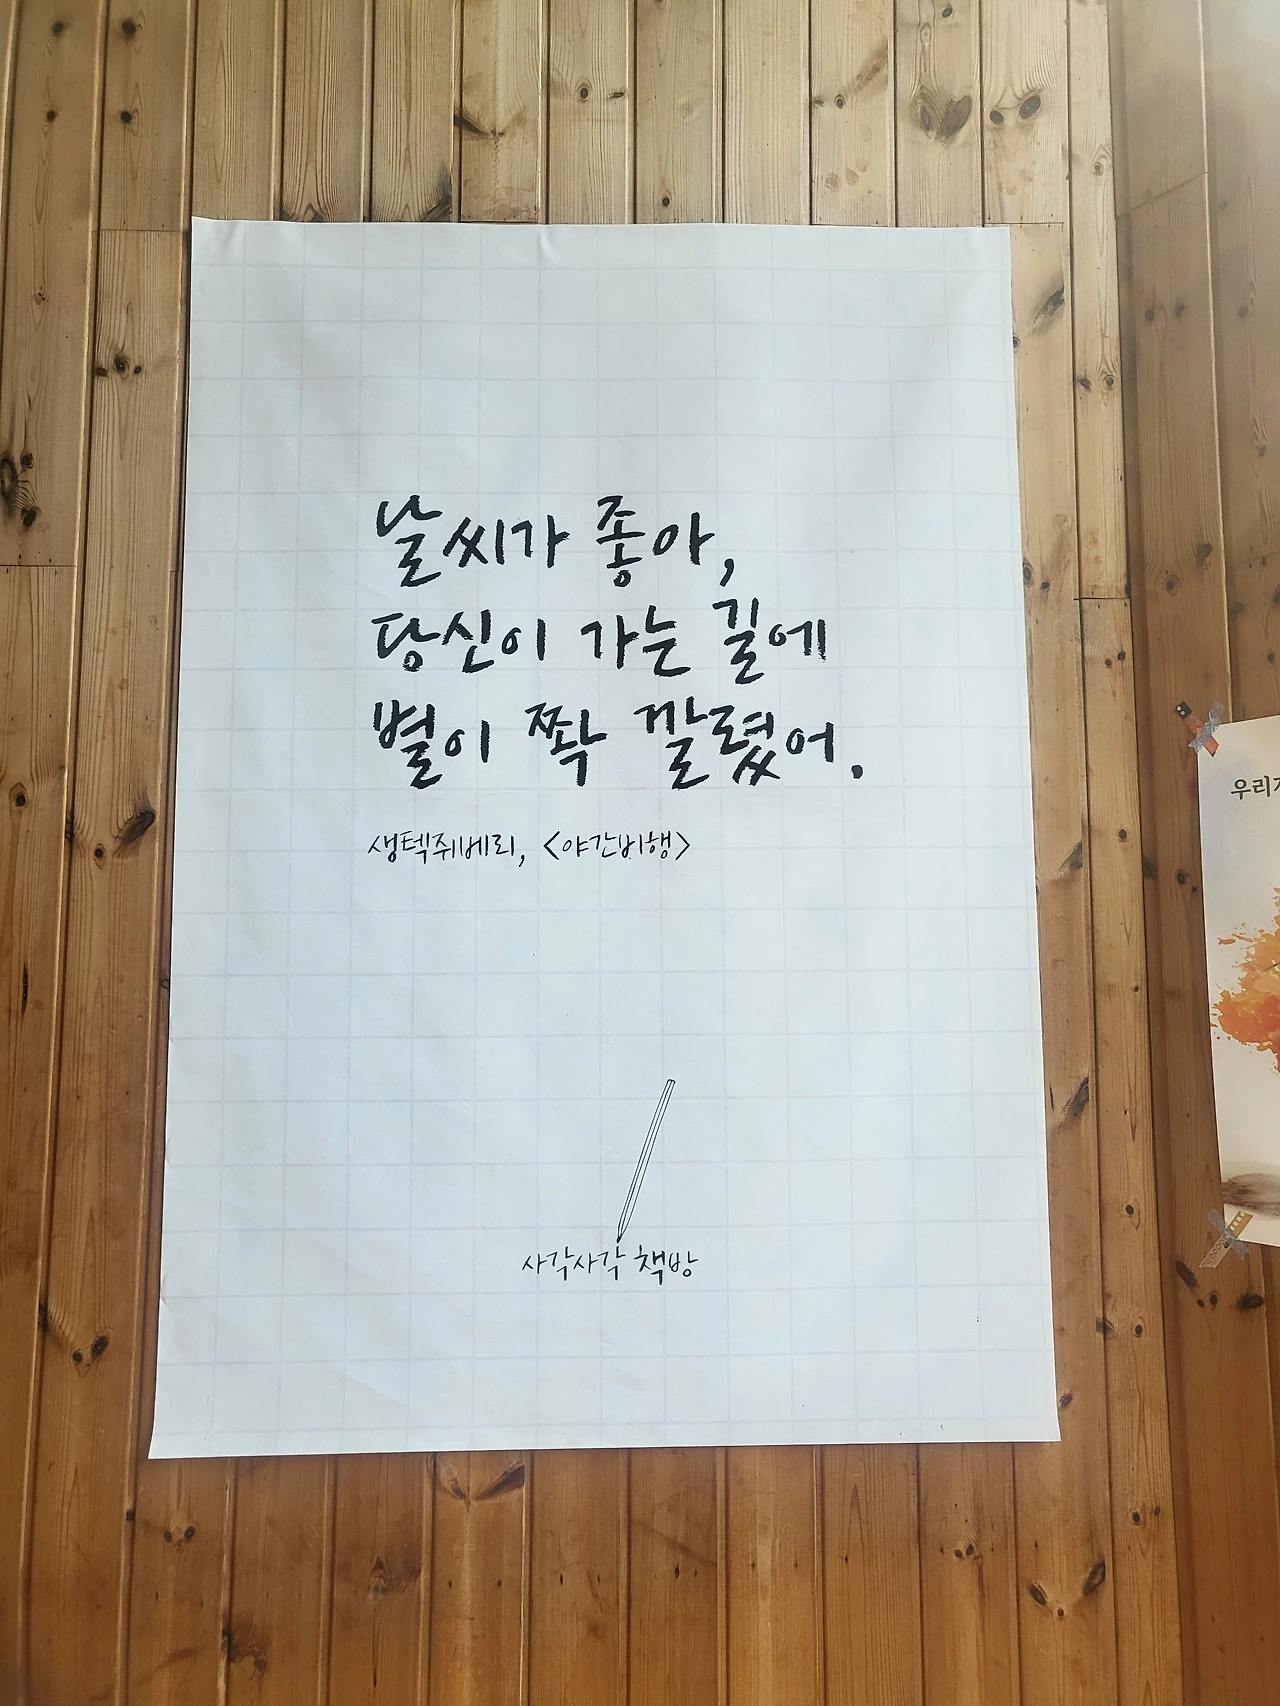 날씨가 좋아,
당신이 가는 길에
별이 쫙 깔렸어.
생텍쥐베리, <야간비행>
사각사각 책방
우리가